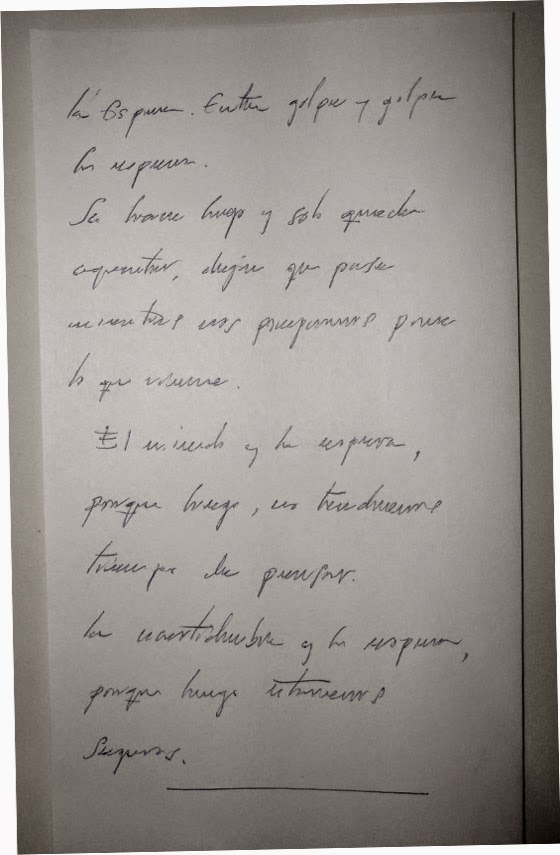 La Espera. Entre golpe y golpe
la espera.
Se hace largo y solo queda
aguantar, dejar que pase
mientras nos preparamos para
lo que viene.
El miedo y la espera,
porque luego, no tendremos
tiempo de pensar.
La incertidumbre y la espera,
porque luego estaremos
seguros.